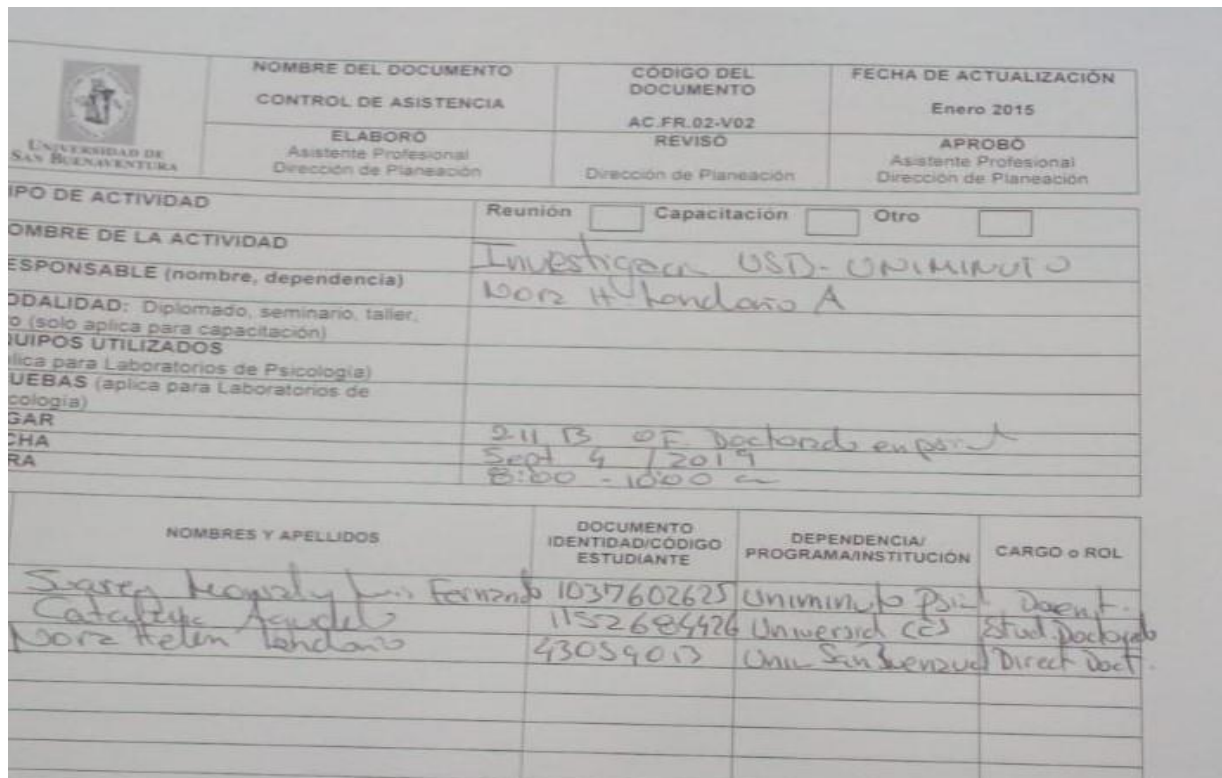 UNIVERSIDAD DE
SAN BUENAVENTURA
NOMBRE DEL DOCUMENTO
CONTROL DE ASISTENCIA
CÓDIGO DEL
DOCUMENTO
AC.FR.02-V02
FECHA DE ACTUALIZACIÓN
Enero 2015
ELABORÓ
Asistente Profesional
Dirección de Planeación
REVISÓ
Dirección de Planeación
APROBÓ
Asistente Profesional
Dirección de Planeación
IPO DE ACTIVIDAD
Reunión Capacitación Otro
OMBRE DE LA ACTIVIDAD
USB- UNIMINUTO
ESPONSABLE (nombre, dependencia)
Nora H Londoño A
ODALIDAD: Diplomado, seminario, taller,
o (solo aplica para capacitación)
QUIPOS UTILIZADOS
lica para Laboratorios de Psicología)
UEBAS (aplica para Laboratorios de
cología)
GAR
211 B OF Doctorado en
CHA
Sept 4 / 2019
RA
8:00 - 10:00
NOMBRES Y APELLIDOS
DOCUMENTO
IDENTIDAD/CÓDIGO
ESTUDIANTE
DEPENDENCIA/
PROGRAMA/INSTITUCIÓN
CARGO o ROL
Fernando 1037602625 Uniminuto
Agudelo 1152684426 CES Stud. Doctorado
Nora Helena Londoño 43059013 Direct Doct.